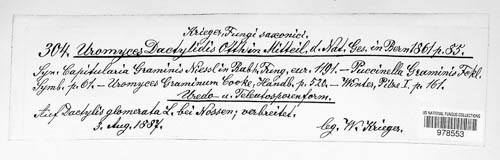 Krieger, Fungi saxonici.
304. Uromyces Dactylidis Otth in Mitteil. d. Nat. Ges. in Bern 1861 p. 85.
Syn. Capitularia Graminis Niessl in Rabh. Fung. eur. 1191. — Puccinella Graminis Fckl.
Symb. p. 61. — Uromyces Graminum Cooke, Handb. p. 520. — Winter, Pilze I, p. 161.
Uredo- u. Teleutosporenform.
Auf Dactylis glomerata L. bei Nossen; verbreitet.
3. Aug. 1887.
leg. W. Krieger.
US NATIONAL FUNGUS COLLECTIONS
978553